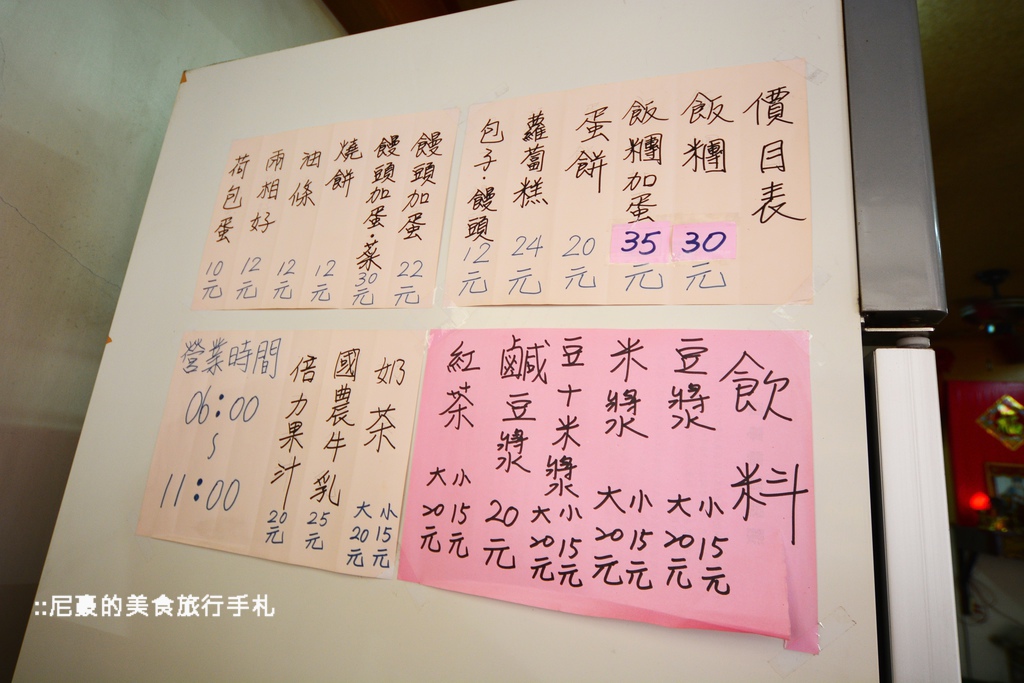 價目表
飯糰 30元
飯糰加蛋 35元
蛋餅 20元
蘿蔔糕 24元
包子饅頭 12元
饅頭加蛋 22元
饅頭加蛋·菜 30元
燒餅 12元
油條 12元
兩相好 12元
荷包蛋 10元
飲料
豆漿 小15元 大20元
米漿 小15元 大20元
豆十米漿 小15元 大20元
鹹豆漿 20元
紅茶 小15元 大20元
奶茶 小15元 大20元
國農牛乳 25元
倍力果汁 20元
營業時間
06:00
~
11:00
::尼豪的美食旅行手札